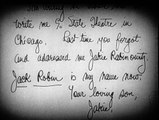 wrote me c/o State Theatre in
Chicago. Last time you forgot
and addressed me Jakie Rabinowitz.
Jack Robin is my name now.
Your loving son,
Jakie